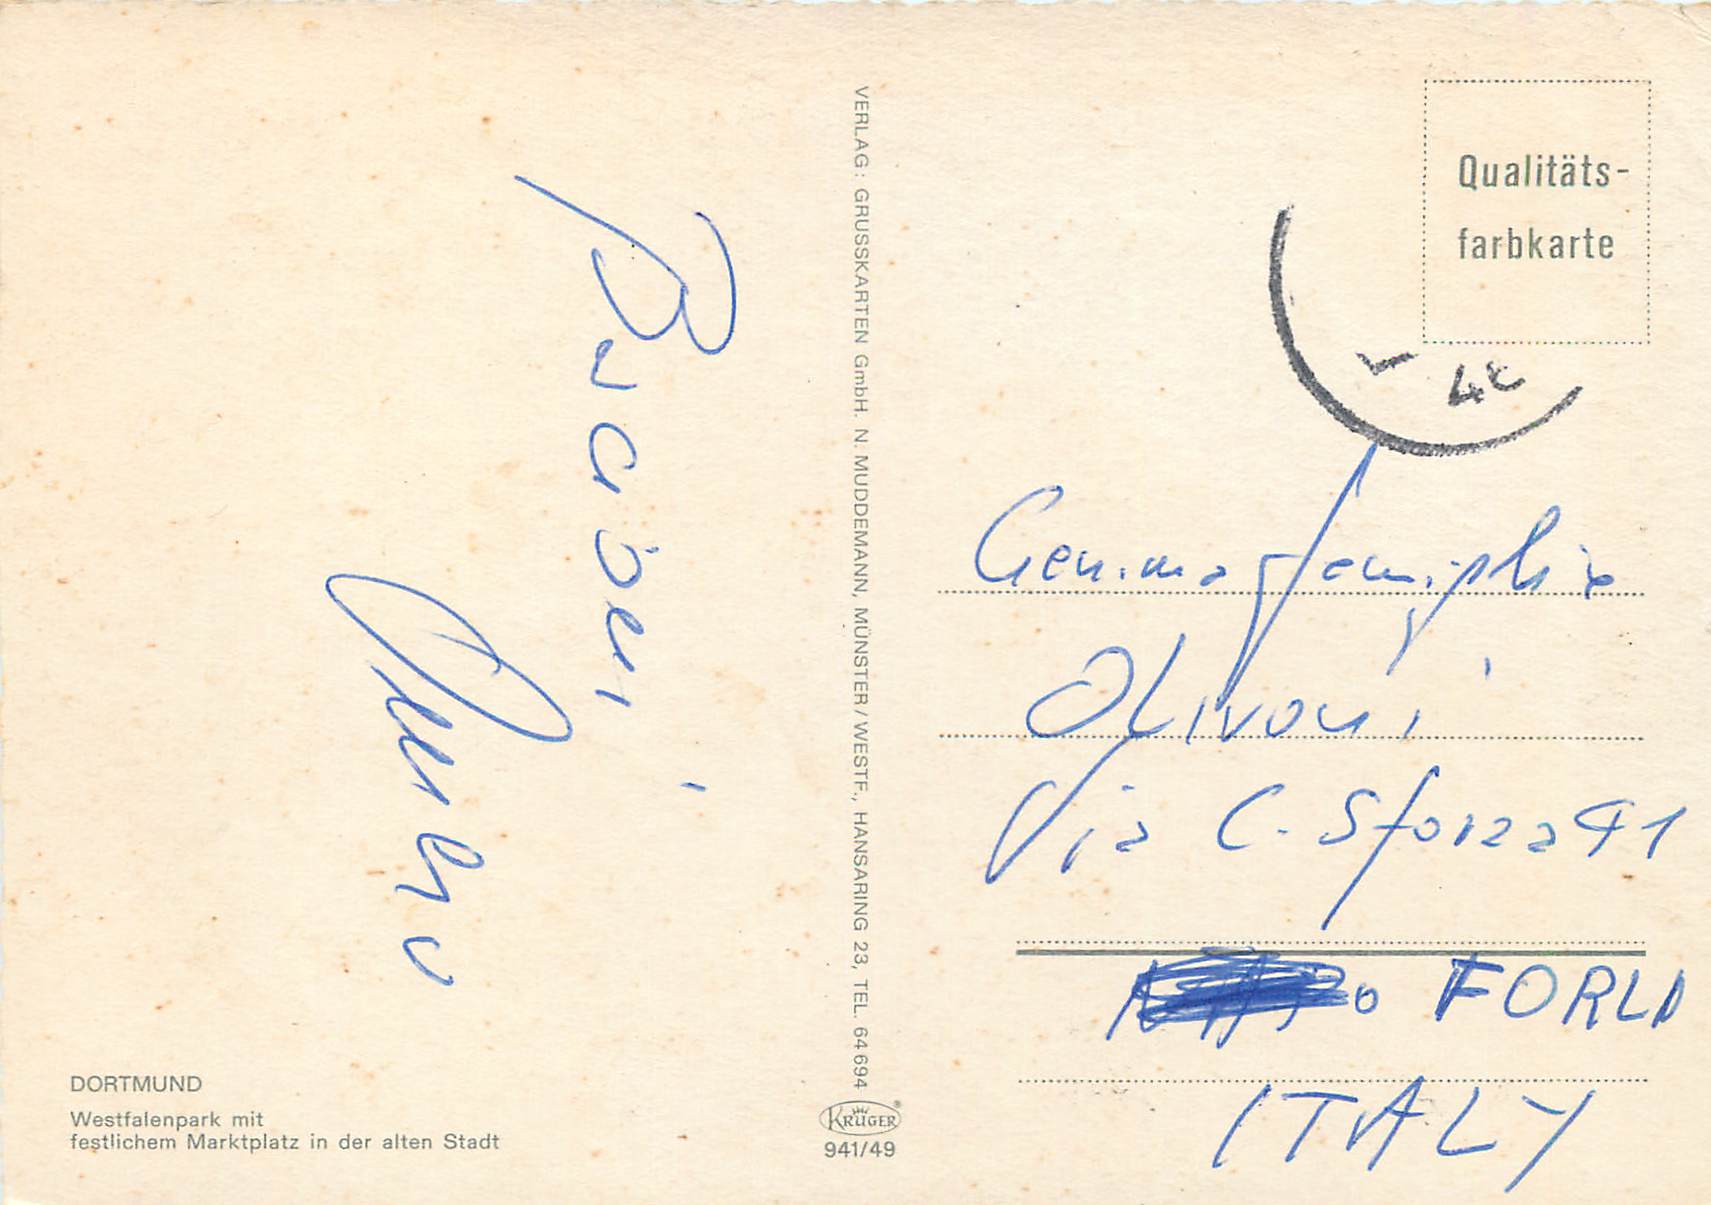 Qualitäts-
farbkarte
4c
Gemma famiglia
OLIVONI
Via C. Sforza 41
FORLI
ITALY
VERLAG: GRUSSKARTEN GmbH. N. MUDDEMANN, MÜNSTER/WESTF., HANSARING 23, TEL. 64694
KRÜGER
941/49
DORTMUND
Westfalenpark mit
festlichem Marktplatz in der alten Stadt